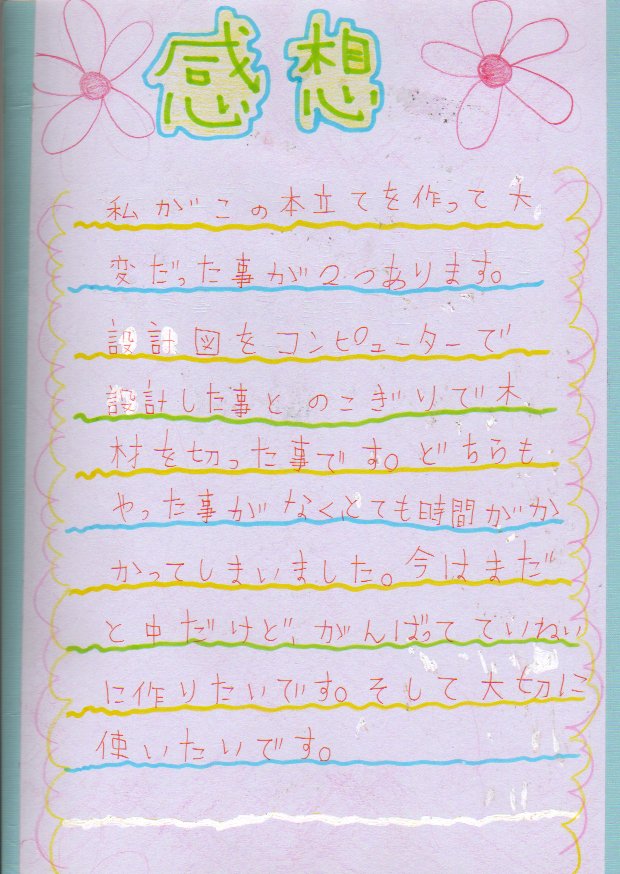 感想
私がこの本立てを作って大
変だった事が2つあります。
設計図をコンピューターで
設計した事とのこぎりで木
材を切った事です。どちらも
やった事がなくとても時間がか
かってしまいました。今はまだ
と中だけど、がんばってていねい
に作りたいです。そして大切に
使いたいです。